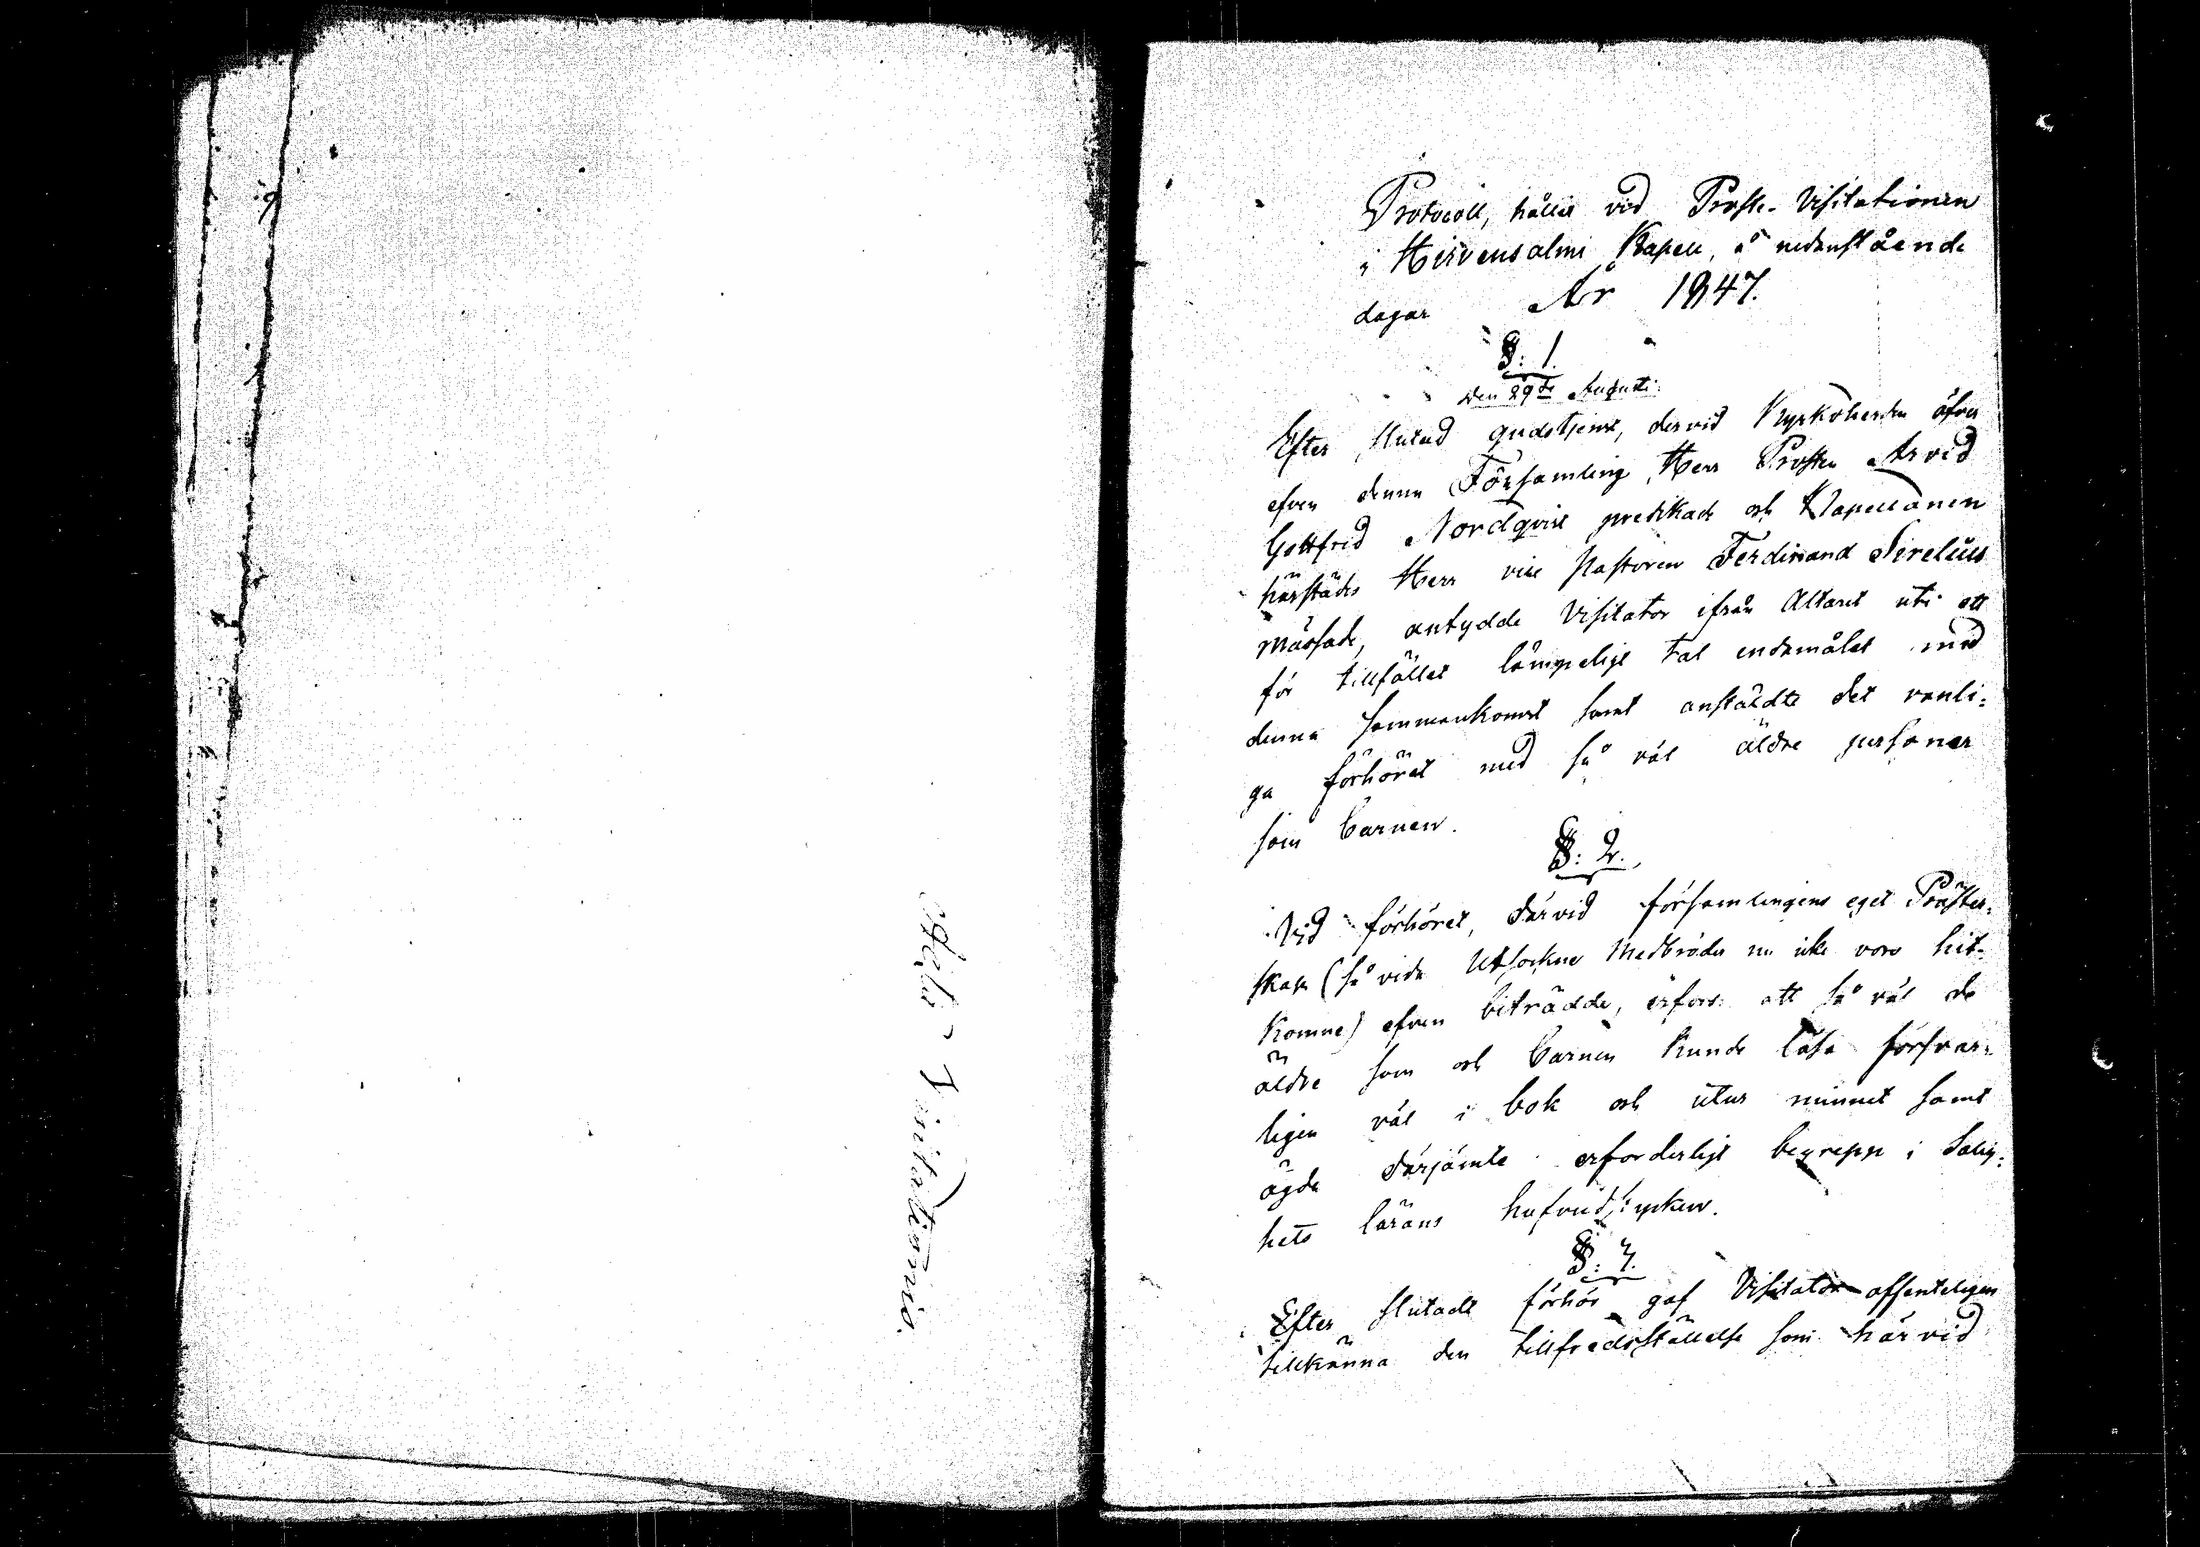 Acta Visitationis.
Protocoll, hållit vid Prosts-Visitationen
i Hirvensalmi Kapell, å nedanstående
dagar År 1847.
§: 1.
den 29de Augusti.
Efter slutad gudstjenst, dervid Kyrkoherden öfver
efven denna Församling, Herr Prosten Arvid
Gottfrid Nordqvist predikade och Kapellanen
härstädes Herr vice Pastoren Ferdinand Sirelius
mässade, antydde Visitator ifrån Altaret uti ett
för tillfället lämpeligt tal endamålet med
denna sammankomst samt anstäldte det vanli:
ga förhöret med så väl äldre personer
som barnen.
§: 2.
Vid förhöret, därvid församlingens eget Präster:
skap (så vida Utsockne Medbröder nu icke voro hit-
komne) efven biträdde, erfors att så väl de
äldre som och barnen kunde läsa försvar:
ligen väl i bok och utur minnet samt
ägde därjämte erforderligt begrepp i Salig:
hets lärans hufvudstycken.
§: 3.
Efter slutadt förhör gaf Visitator offenteligen
tillkänna den tillfredsställelse som härvid